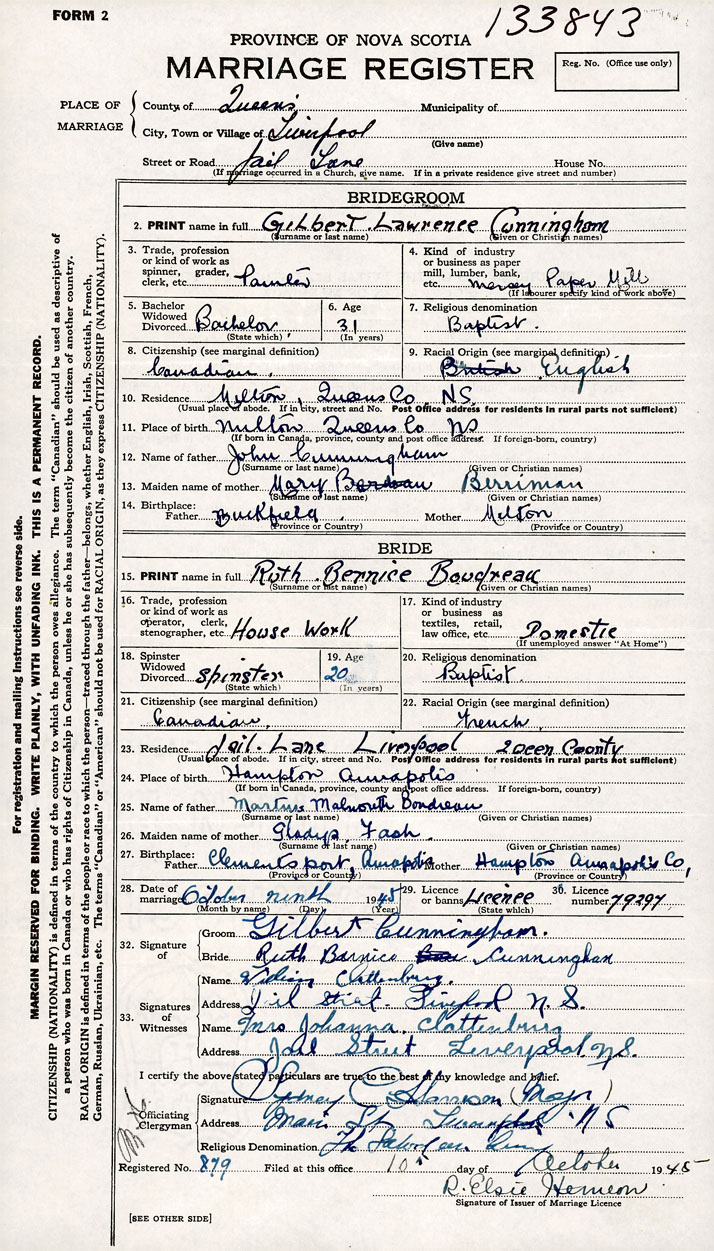 FORM 2
133843
PROVINCE OF NOVA SCOTIA
MARRIAGE REGISTER
Reg. No. (Office use only)
PLACE OF MARRIAGE
County of Queens Municipality of
City, Town or Village of Liverpool
(Give name)
Street or Road Jail Lane House No.
(If marriage occurred in a Church, give name. If in a private residence give street and number)
BRIDEGROOM
2. PRINT name in full Gilbert Lawrence Cunningham
(Surname or last name) (Given or Christian names)
3. Trade, profession or kind of work as spinner, grader, clerk, etc. Painter
4. Kind of industry or business as paper mill, lumber, bank, etc. Mersey Paper Mill
(If labourer specify kind of work above)
5. Bachelor Widowed Divorced Bachelor
(State which)
6. Age 31
(In years)
7. Religious denomination
Baptist.
8. Citizenship (see marginal definition)
Canadian.
9. Racial Origin (see marginal definition)
British English
10. Residence Milton, Queens Co. NS.
(Usual place of abode. If in city, street and No. Post Office address for residents in rural parts not sufficient)
11. Place of birth Milton Queens Co NS
(If born in Canada, province, county and post office address. If foreign-born, country)
12. Name of father John Cunningham
(Surname or last name) (Given or Christian names)
13. Maiden name of mother Mary Berriman
(Surname or last name) (Given or Christian names)
14. Birthplace: Father Buckfield Mother Milton
(Province or Country) (Province or Country)
BRIDE
15. PRINT name in full Ruth Bernice Boudreau
(Surname or last name) (Given or Christian names)
16. Trade, profession or kind of work as operator, clerk, stenographer, etc. House Work
17. Kind of industry or business as textiles, retail, law office, etc. Domestic
(If unemployed answer "At Home")
18. Spinster Widowed Divorced Spinster
(State which)
19. Age 20
(In years)
20. Religious denomination
Baptist.
21. Citizenship (see marginal definition)
Canadian.
22. Racial Origin (see marginal definition)
French.
23. Residence Jail. Lane Liverpool Queen County
(Usual place of abode. If in city, street and No. Post Office address for residents in rural parts not sufficient)
24. Place of birth Hampton Annapolis
(If born in Canada, province, county and post office address. If foreign-born, country)
25. Name of father Boudreau
(Surname or last name) (Given or Christian names)
26. Maiden name of mother Gladys Fash
(Surname or last name) (Given or Christian names)
27. Birthplace: Father Clementsport, Anapolis Mother Hampton Annapolis Co,
(Province or Country) (Province or Country)
28. Date of marriage October ninth 1945
(Month by name) (Day) (Year)
29. Licence or banns Licence
(State which)
30. Licence number 79297
32. Signature of
Groom Gilbert Cunningham.
Bride Ruth Barnice Cunningham
33. Signatures of Witnesses
Name Clattenburg.
Address Jail Street. Liverpool N. S.
Name Mrs Johanna Clattenburg
Address Jail Street Liverpool N.S.
I certify the above stated particulars are true to the best of my knowledge and belief.
Officiating Clergyman
Signature Sydney Harrison (Major)
Address Main St. Liverpool N S
Religious Denomination The Salvation Army
Registered No. 879 Filed at this office 10th day of October 1945
R. Elsie Hemeon
Signature of Issuer of Marriage Licence
[SEE OTHER SIDE]
For registration and mailing instructions see reverse side.
MARGIN RESERVED FOR BINDING. WRITE PLAINLY, WITH UNFADING INK. THIS IS A PERMANENT RECORD.
CITIZENSHIP (NATIONALITY) is defined in terms of the country to which the person owes allegiance. The term "Canadian" should be used as descriptive of
a person who was born in Canada or who has rights of Citizenship in Canada, unless he or she has subsequently become the citizen of another country.
RACIAL ORIGIN is defined in terms of the people or race to which the person—traced through the father—belongs, whether English, Irish, Scottish, French,
German, Russian, Ukrainian, etc. The terms "Canadian" or "American" should not be used for RACIAL ORIGIN, as they express CITIZENSHIP (NATIONALITY).